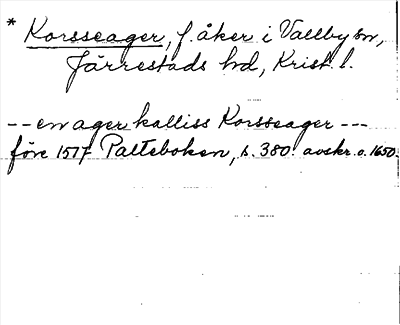 * Korsseager, f. åker i Vallby sn,
Järrestads hd, Krist. l.
-- en ager kalliss Korsseager ---
före 1517 Palteboken, s. 380 avskr. o. 1650.